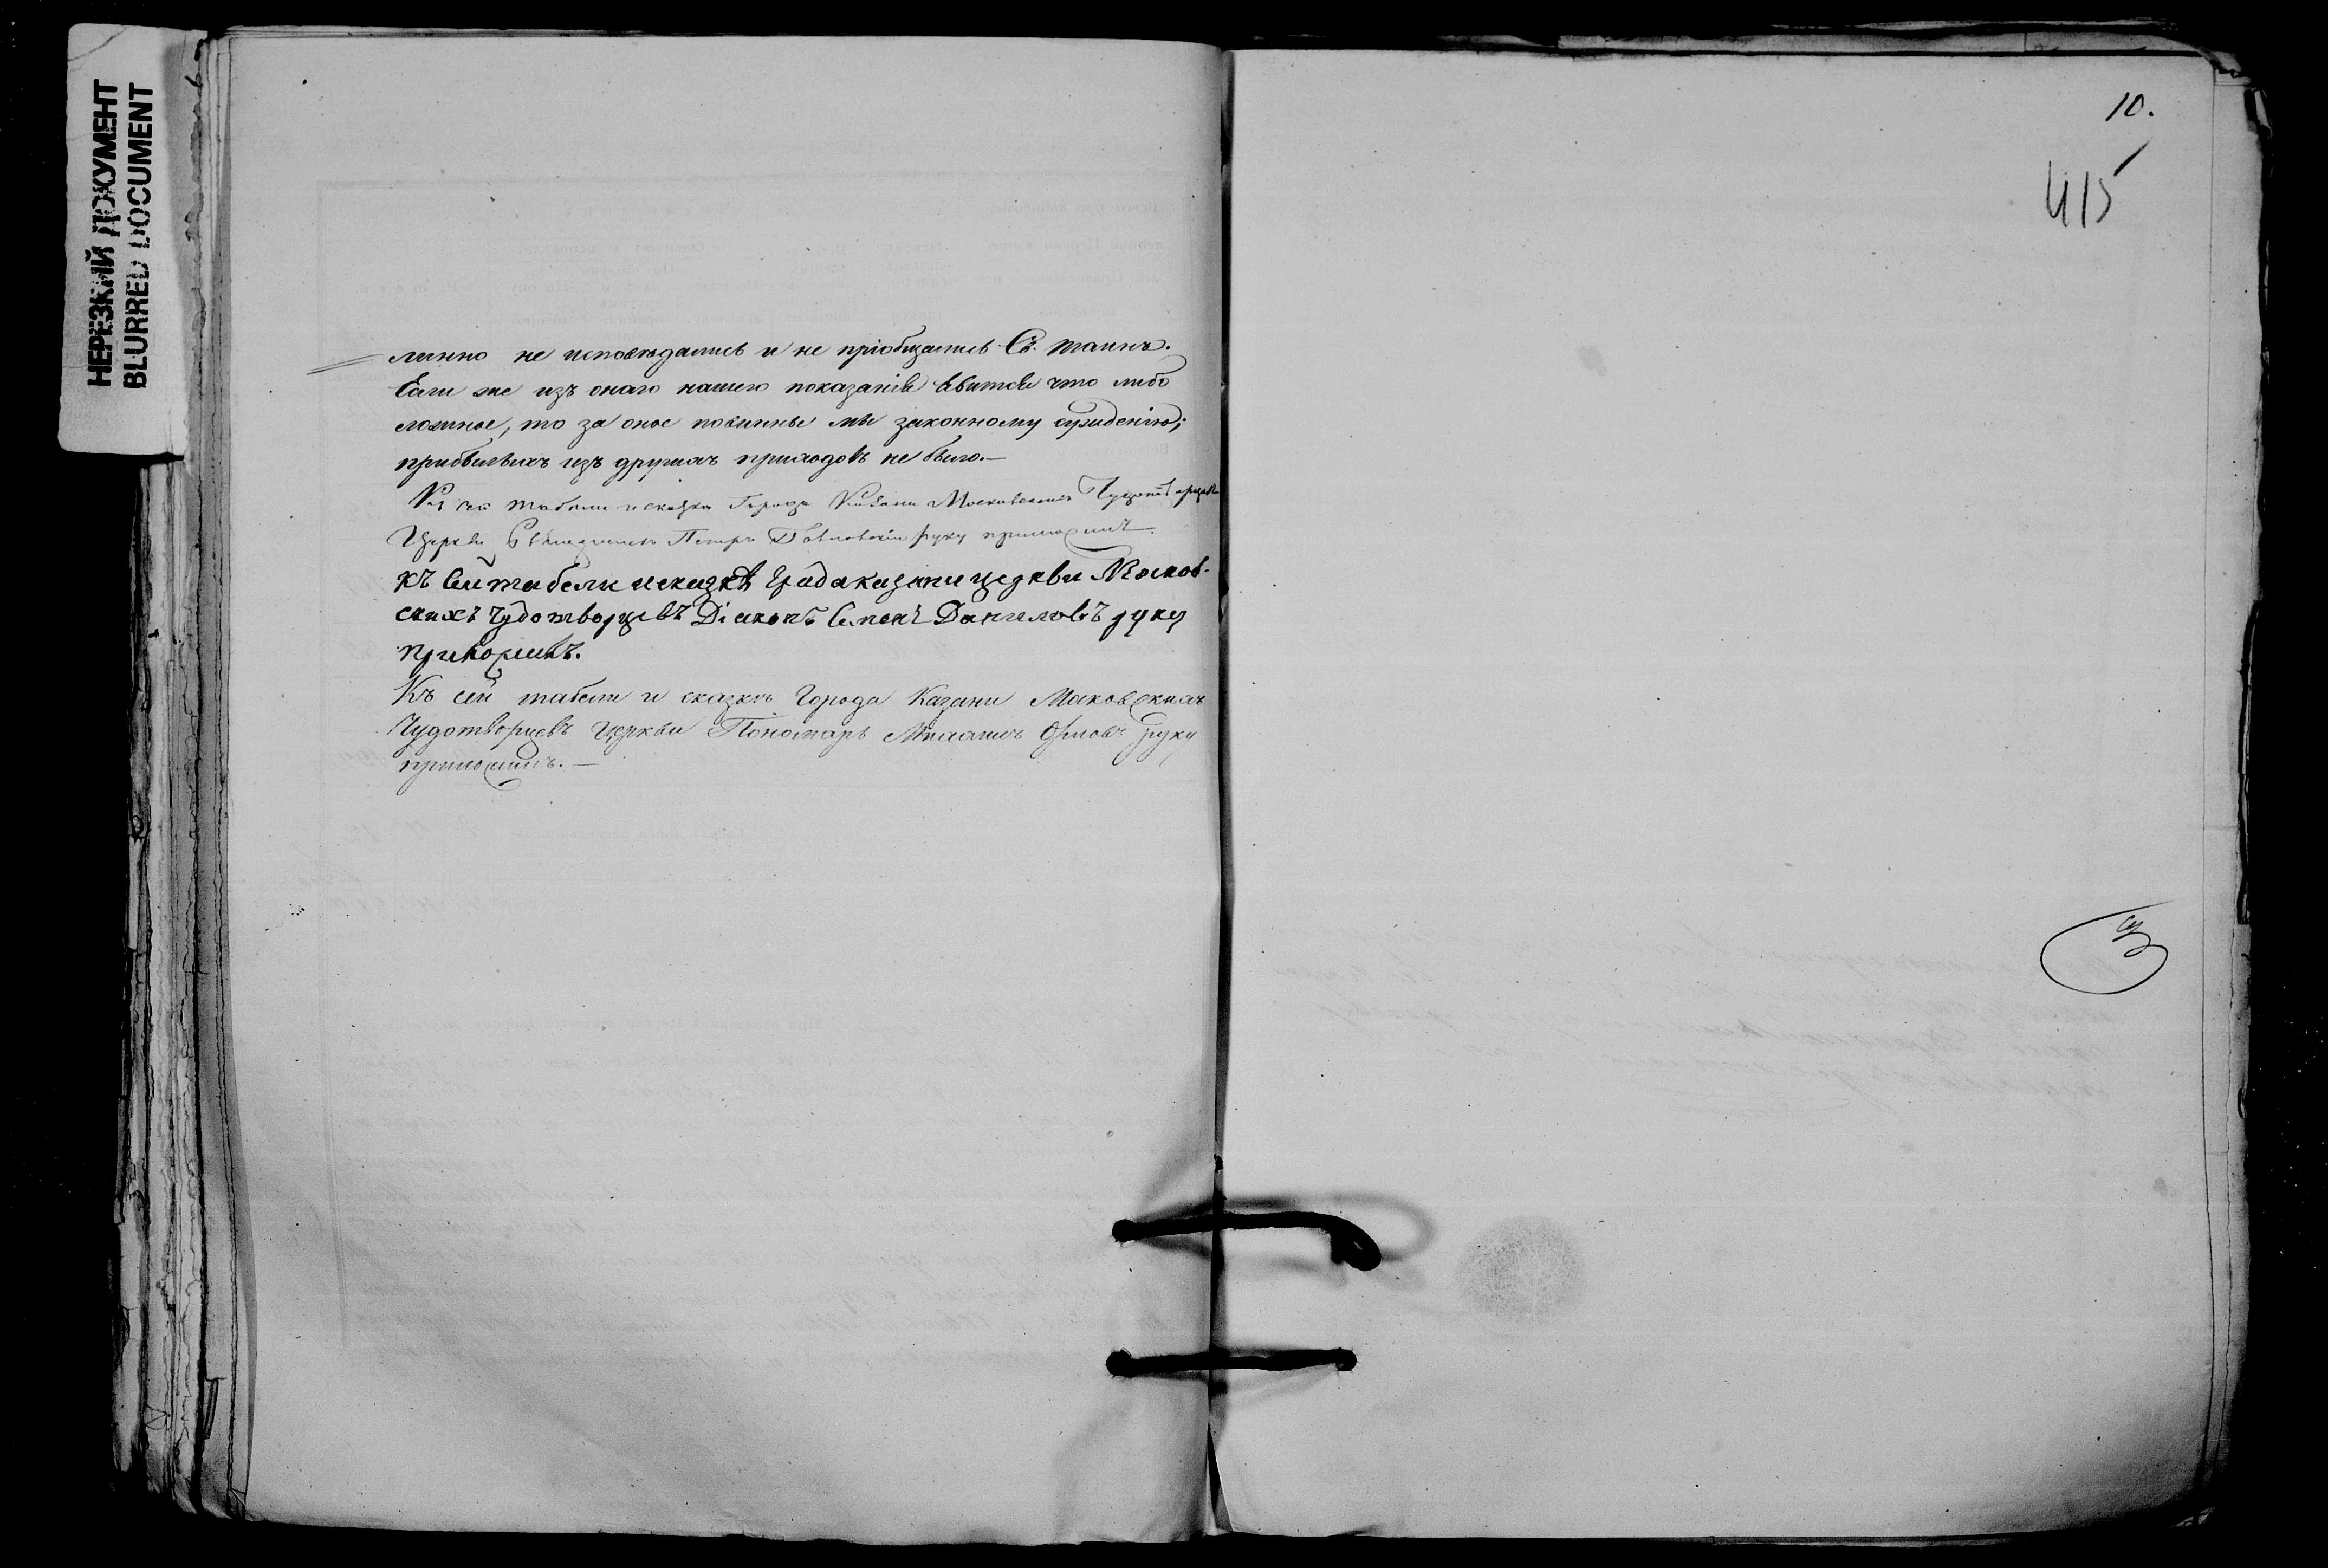 НЕРЕЗКИЙ ДОКУМЕНТ
BLURRED DOCUMENT
линно не исповѣдались и не пріобщались Св. таинъ.
Если же изъ онаго нашего показанія явится что либо
ложное, то за оное повинны мы законному сужденію;
прибылыхъ изъ другихъ приходовъ не было.—
Къ сей табели и сказкѣ Города Казани Московскихъ Чудотворцевъ
Церкви Священникъ Петръ Павловскій руку приложилъ.
Къ сей табели и сказкѣ Града казани церкви Москов-
скихъ Чудотворцевъ Діаконъ Семенъ Даниловъ руку
приложилъ.
Къ сей табели и сказкѣ Города Казани Московскихъ
Чудотворцевъ Церкви Пономарь Орловъ руку
приложилъ.—
10.
415